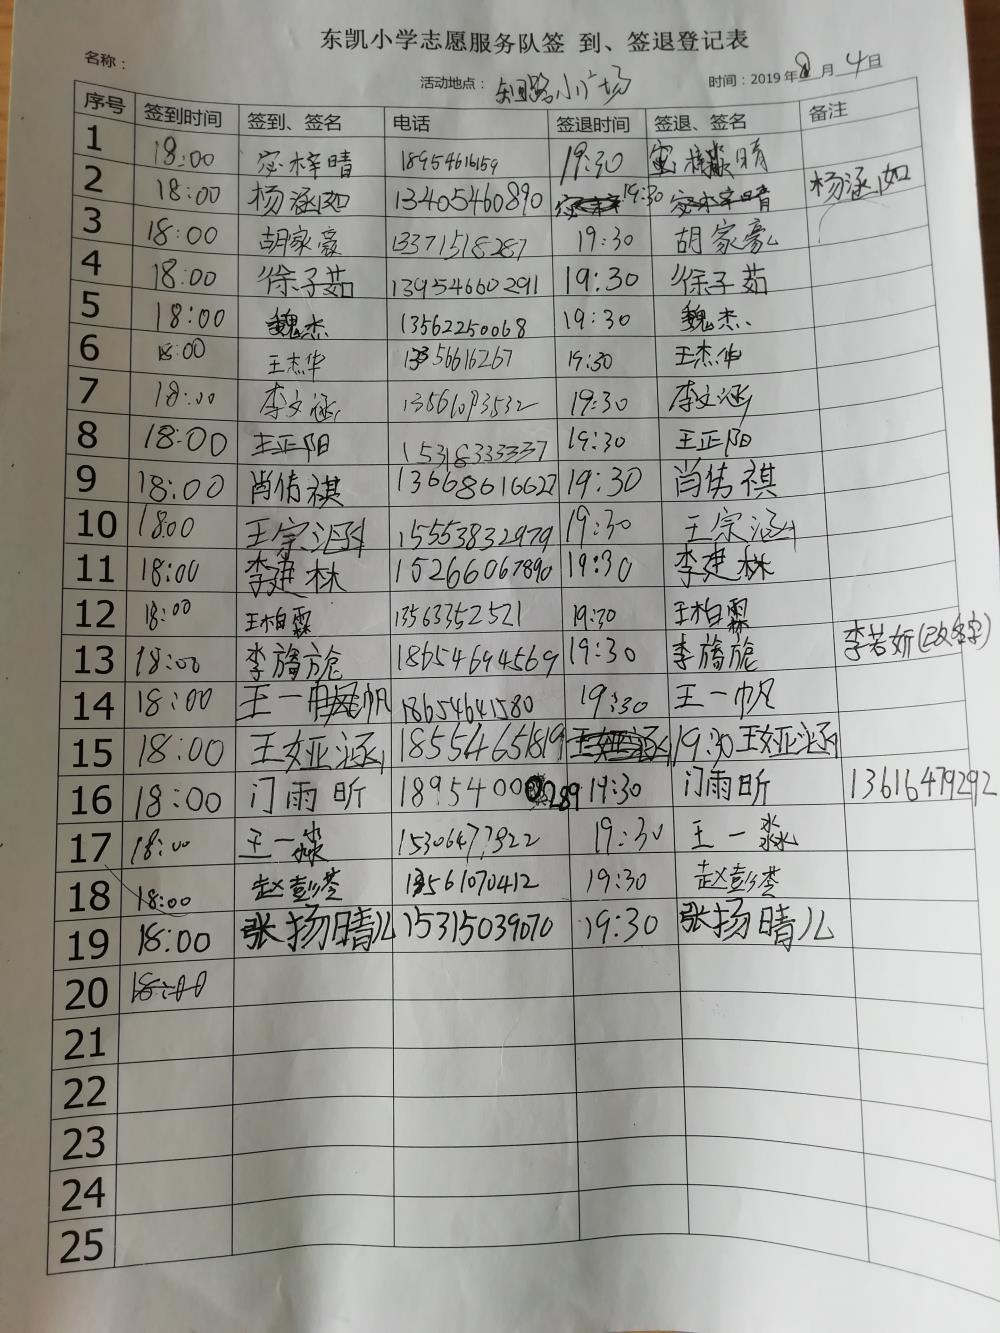 东凯小学志愿服务队签 到、签退登记表
名称：
活动地点： 小广场 时间：2019年8月4日
序号 签到时间 签到、签名 电话 签退时间 签退、签名 备注
1 18:00 宓梓晴 18954616159 19:30 宓梓晴
2 18:00 杨涵如 13405460890 19:30 杨涵如
3 18:00 胡家豪 13371518287 19:30 胡家豪
4 18:00 徐子茹 13954660291 19:30 徐子茹
5 18:00 魏杰 13562250068 19:30 魏杰
6 18:00 王杰华 19:30 王杰华
7 18:00 李文涵 13561093532 19:30 李文涵
8 18:00 王正阳 15318333337 19:30 王正阳
9 18:00 肖倩祺 13668616627 19:30 肖倩祺
10 18:00 王宗涵 15553832979 19:30 王宗涵
11 18:00 李建林 15266067890 19:30 李建林
12 18:00 王柏霖 13563352521 19:30 王柏霖
13 18:00 李旖旎 18654694569 19:30 李旖旎 李若妍(已改名字)
14 18:00 王一帆 18654641580 19:30 王一帆
15 18:00 王娅涵 18554651819 19:30 王娅涵
16 18:00 门雨昕 19:30 门雨昕 13616479292
17 18:00 王一淼 15306477922 19:30 王一淼
18 18:00 赵彭苓 13561070412 19:30 赵彭苓
19 18:00 张扬晴儿 15315039070 19:30 张扬晴儿
20 18:00
21
22
23
24
25